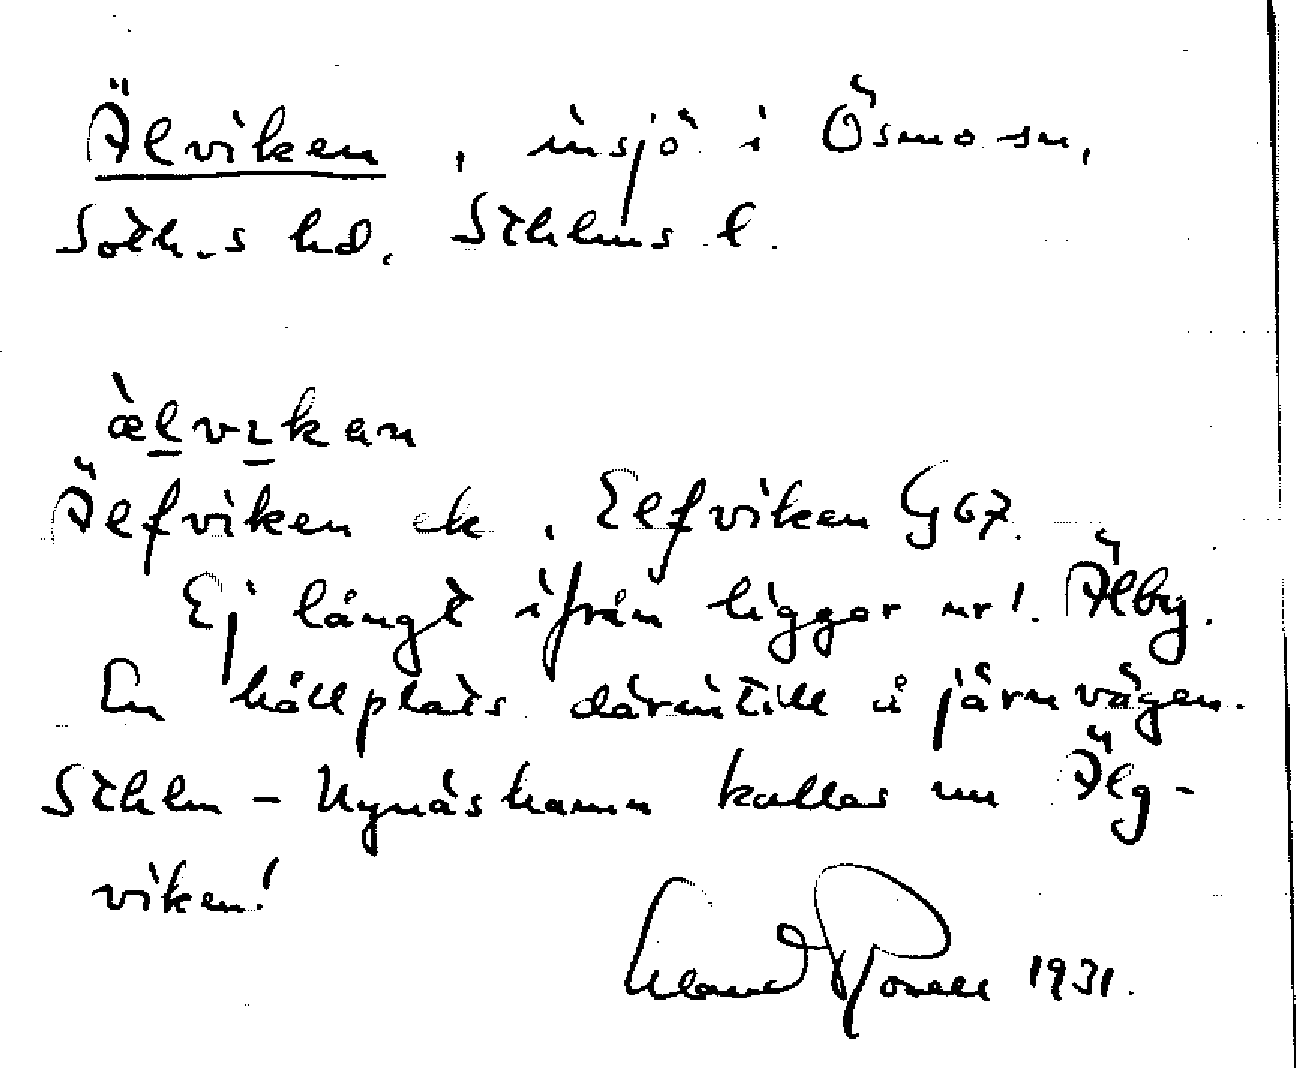 Älviken, insjö i Ösmo sn,
Soth.s hd. Sthlms l.
æ̀lvıkan
Älfviken ek, Elfviken G 67.
Ej långt ifrån ligger nr! Älby.
En hållplats därintill å järnvägen.
Sthlm - Nynäshamn kallas nu Älg-
viken!
1931.